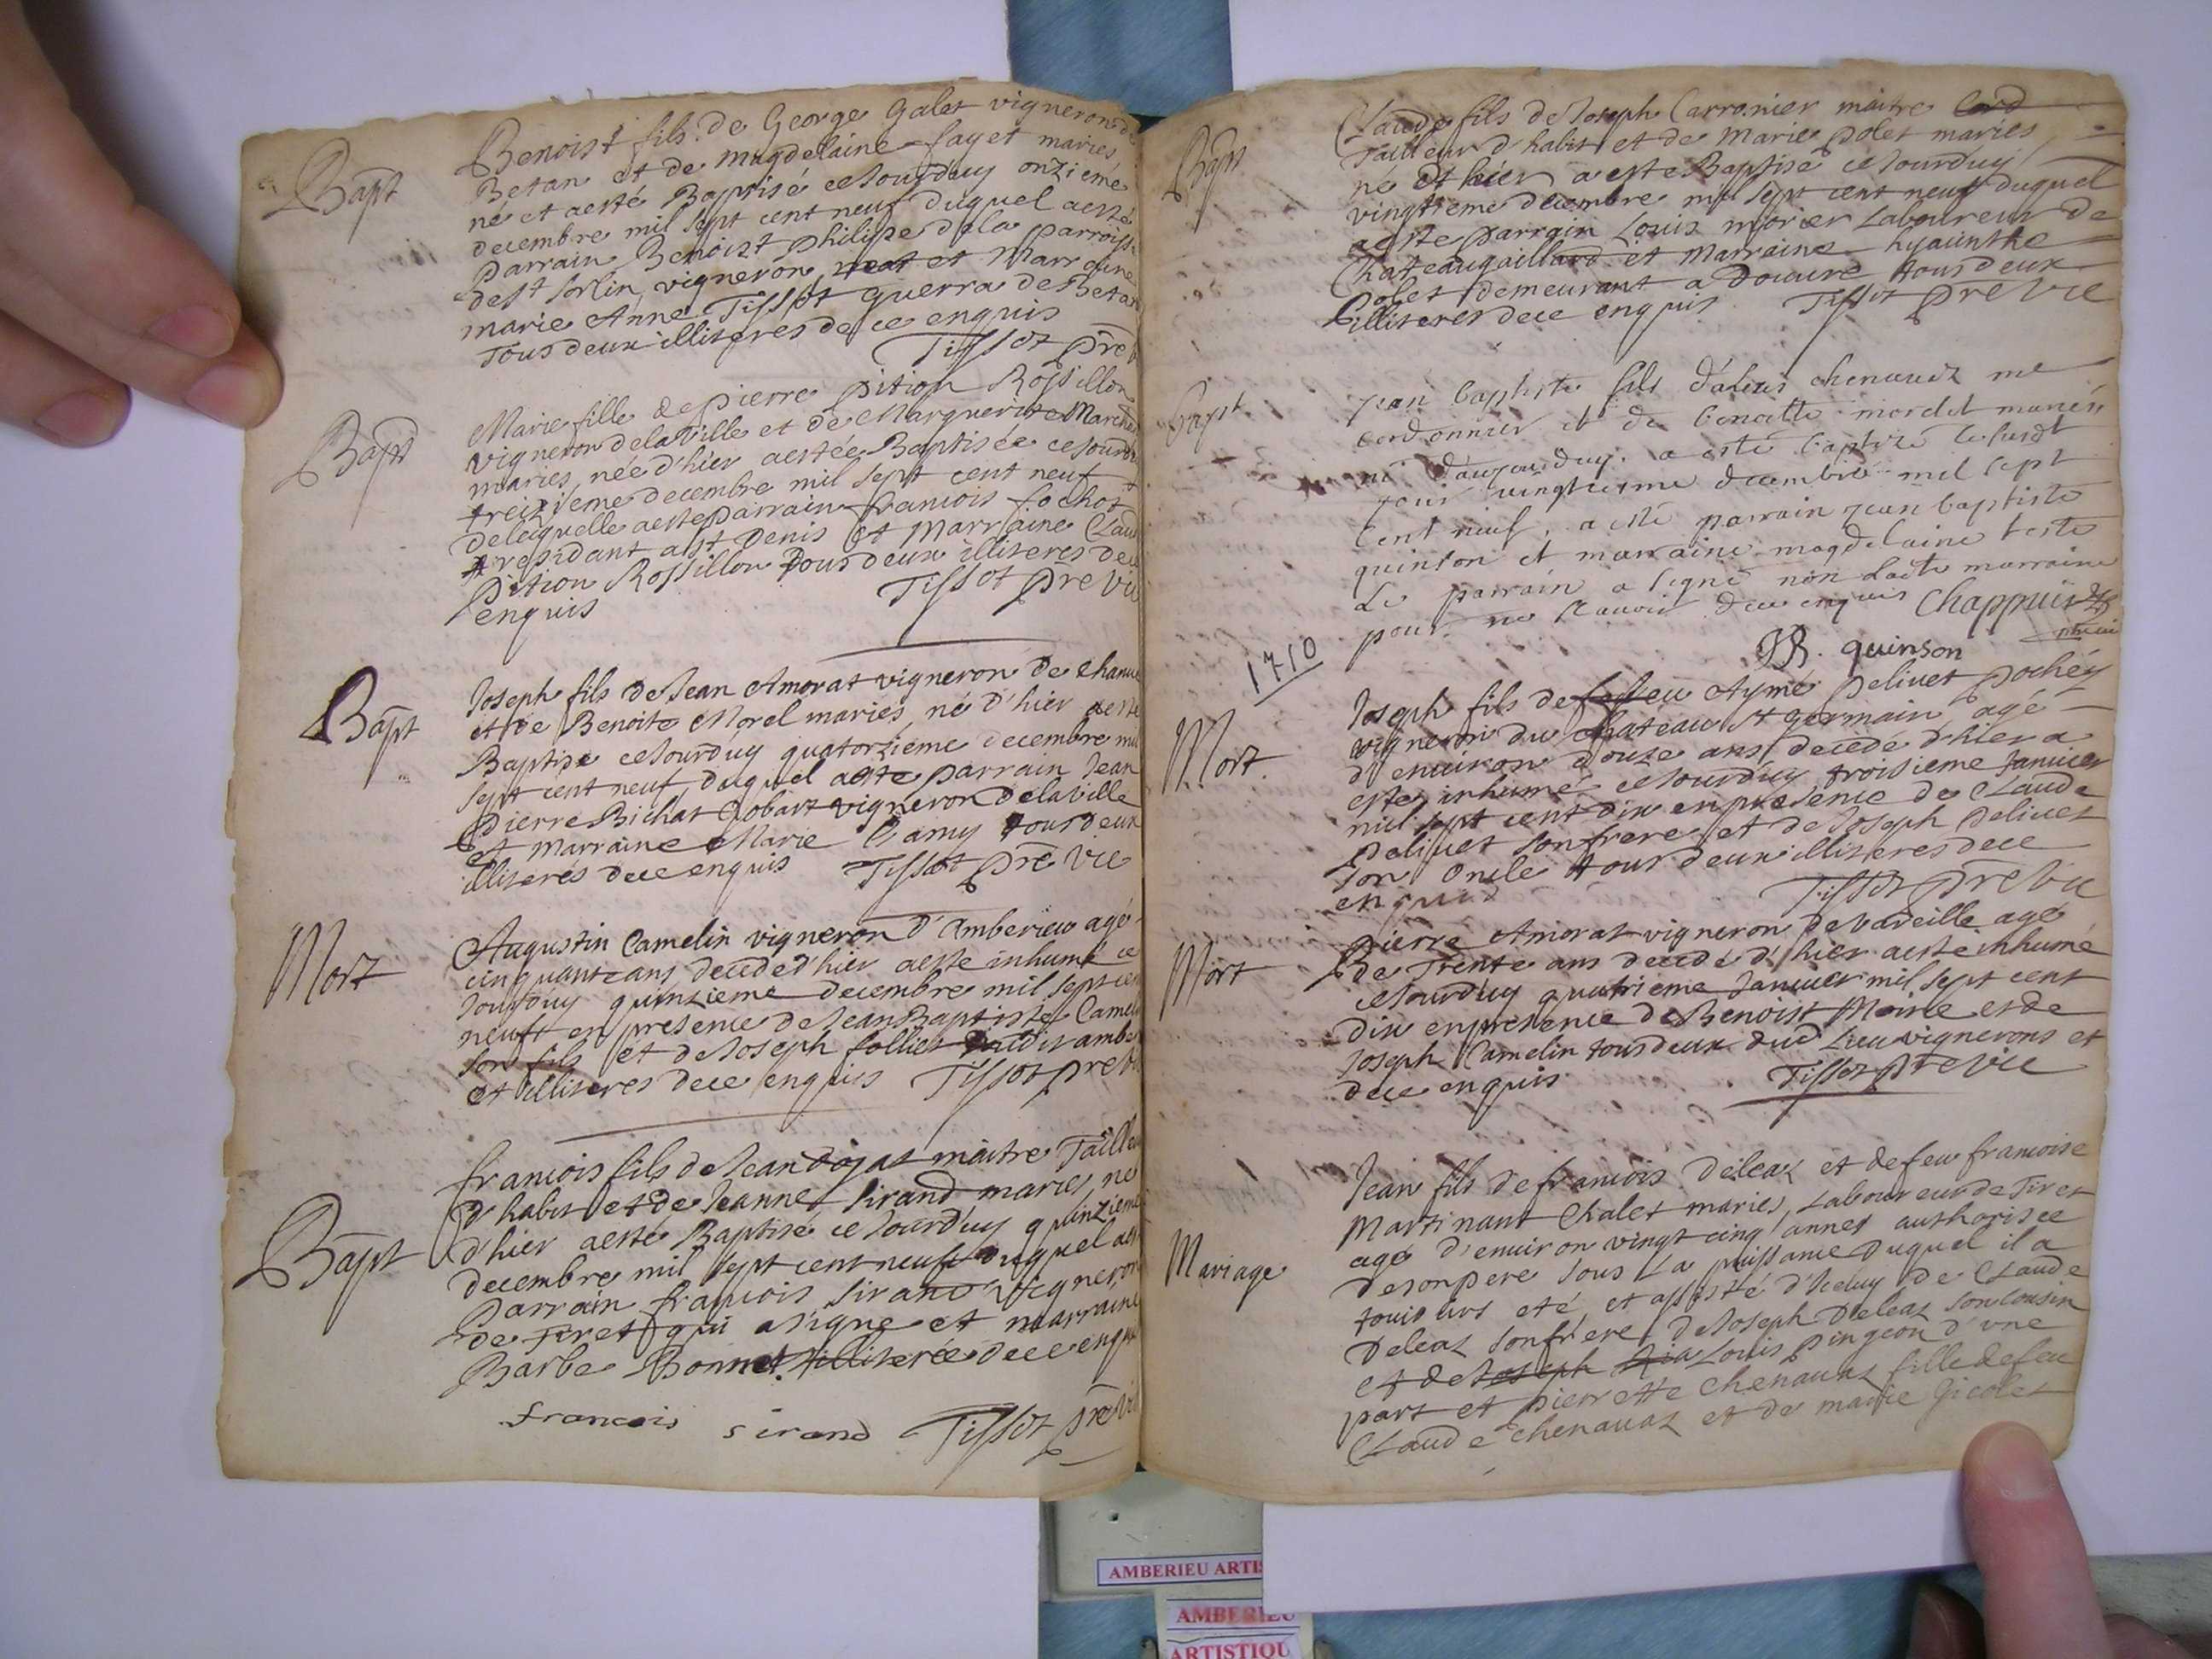 Bapt
Benoist fils de George Galet vigneron de
Betan et de Magdelaine fayet mariés
né et aesté Baptisé cejourduy onzieme
decembre mil sept cent neuf duquel aesté
parrain Benoist philipe dela parroiss
de st sorlin vigneron et Marraine
marie Anne Tissot guerra de Betan
Tous deux illiteres de ce enquis
Tissot pre
Bapt
Marie fille de pierre pition Rossillon
vigneron delaville et de Marguerite March
maries, née d'hier aestée Baptisée cejourduy
treizieme decembre mil sept cent neuf
delaquelle aesté parrain francois fochot
residant a st Denis et Marraine Clau
pition Rossillon Tous deux illiteres dece
enquis Tissot pre vic
Bapt
Joseph fils de Jean Amorat vigneron de Chanu
et de Benoite Morel maries, né d'hier aesté
Baptisé cejourduy quatorzieme decembre mil
sept cent neuf duquel aesté parrain Jean
Pierre Bichat Gobart vigneron delaville
et marraine Marie Camy tous deux
illiterés dece enquis Tissot pre vic
Mort
Augustin Camelin vigneron d'Amberieu agé
cinquante ans decedé d'hier aesté inhumé ce
jourduy quinzieme decembre mil sept cen
neuf en presence de Jean Baptiste Camelin
son fils et de Joseph follier dudit ambe
et illiteres dece enquis Tissot pre v
Bapt
francois fils de Jean dojat maitre Taille
d'habit et de Jeanne Sirand maries, né
d'hier aesté Baptisé ce jourduy quinzieme
decembre mil sept cent neuf duquel aes
parrain francois Sirand Vigneron
de Tiret qui a signe et marraine
Barbe Bonnet illiterée dece enqu
francois sirand Tissot pre vic
Bapt
Claude fils de Joseph Carronier maitre cord
Tailleur d'habit et de Marie polet maries
né d'hier a esté Baptisé cejourduy
vingtieme decembre mil sept cent neuf duquel
aesté parrain Louis morier Laboureur de
Chateaugaillard et Marraine hyacinthe
polet demeurant a Douvre tous deux
illiteres dece enquis Tissot pre vic
Bapt
jean baptiste fils d'alexis chenavaz me
cordonnier et de benoitte mordet mariés
né d'aujourduy. a esté baptizé lesusdt
jour vingtiesme decembre mil sept
cent neuf, a esté parrain jean baptiste
quinson et marraine magdelaine teste
Le parrain a signé non ladte marraine
pour ne scavoir dece enquis Chappuis
JB. quinson
1710
Mort.
Joseph fils de feu Aymé pelivet pochéy
vigneron du chateau st germain agé
d'environ douze ans decedé d'hier a
esté inhumé cejourduy troisieme Janvier
mil sept cent dix en presence de Claude
pelivet son frere et de Joseph pelivet
son Oncle tous deux illiteres dece
enquis Tissot pre vic
Mort
Pierre Amorat vigneron de vareille agé
de Trente ans decedé d'hier aesté inhumé
cejourduy quatrieme Janvier mil sept cent
dix en presence de Benoist Moine et de
Joseph Camelin tous deux dud Lieu vignerons et
dece enquis Tissot pre vic
Mariage
Jean fils de francois Deleaz et de feu francoise
Martinant Chalet maries, Laboureur de Tiret
agé d'environ vingt cinq années authorisée
de son pere sous La puissance duquel il a
toujours eté et assisté d'Iceluy de Claude
Deleaz son frere, de Joseph Deleaz son cousin
et de Joseph Louis pingeon d'une
part et pierrette Chenavaz fille de feu
Claude Chenavaz et de marie Jicolet
AMBERIEU ARTIS
AMBERIEU
ARTISTIQU